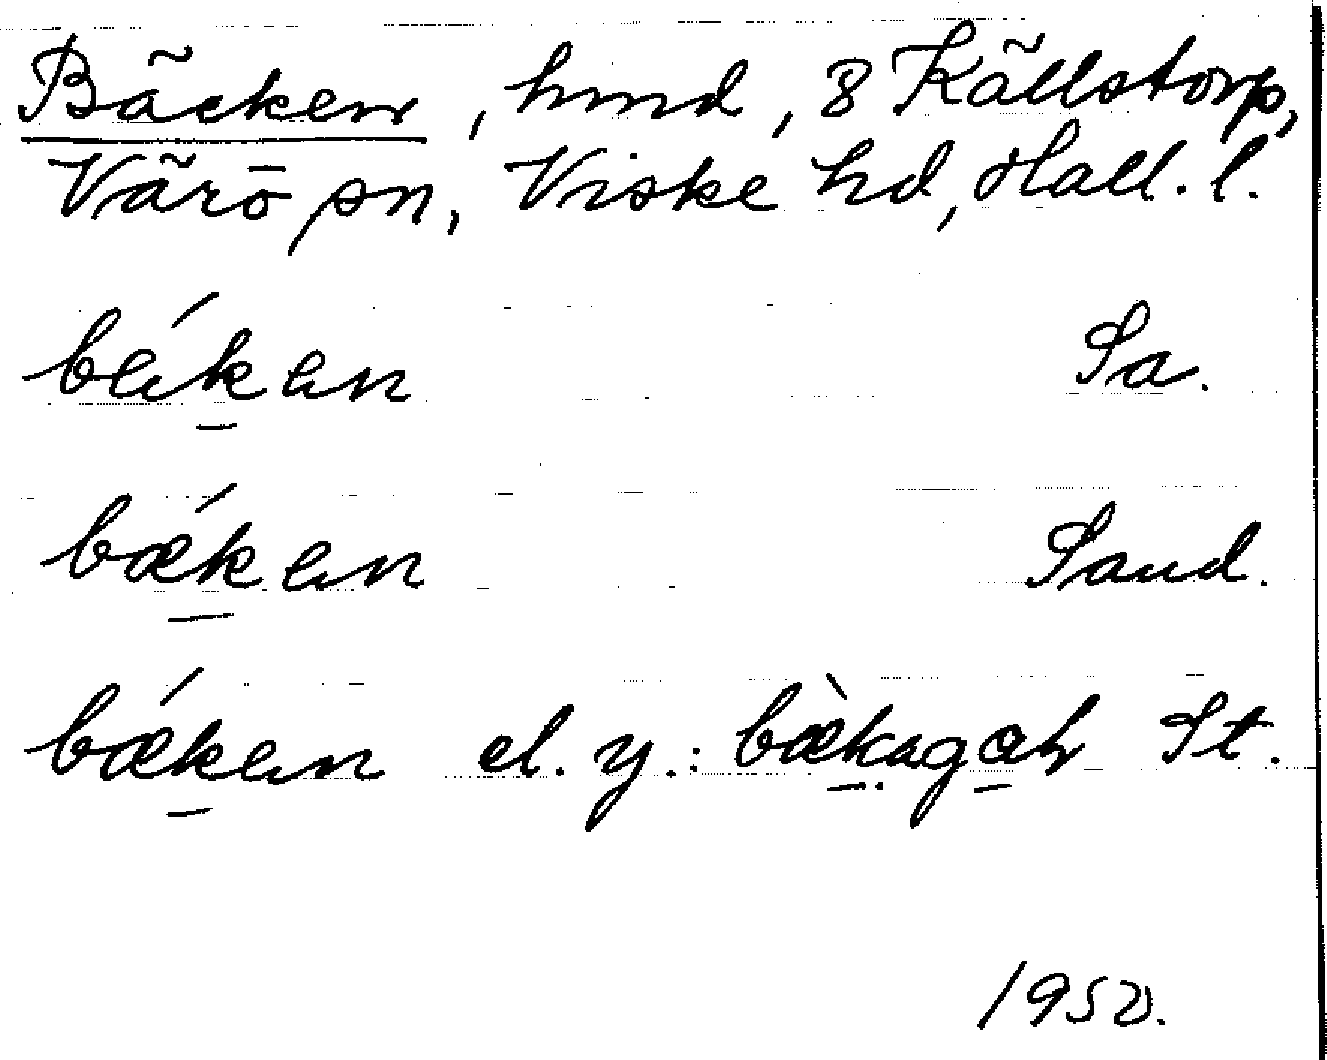 Bäcken, hmd, 8 Källstorp,
Värö sn, Viske hd, Hall. l.
bǽken Sa.
bǽken Sand.
bǽken el. y.: bæ̀kagah St.
1950.